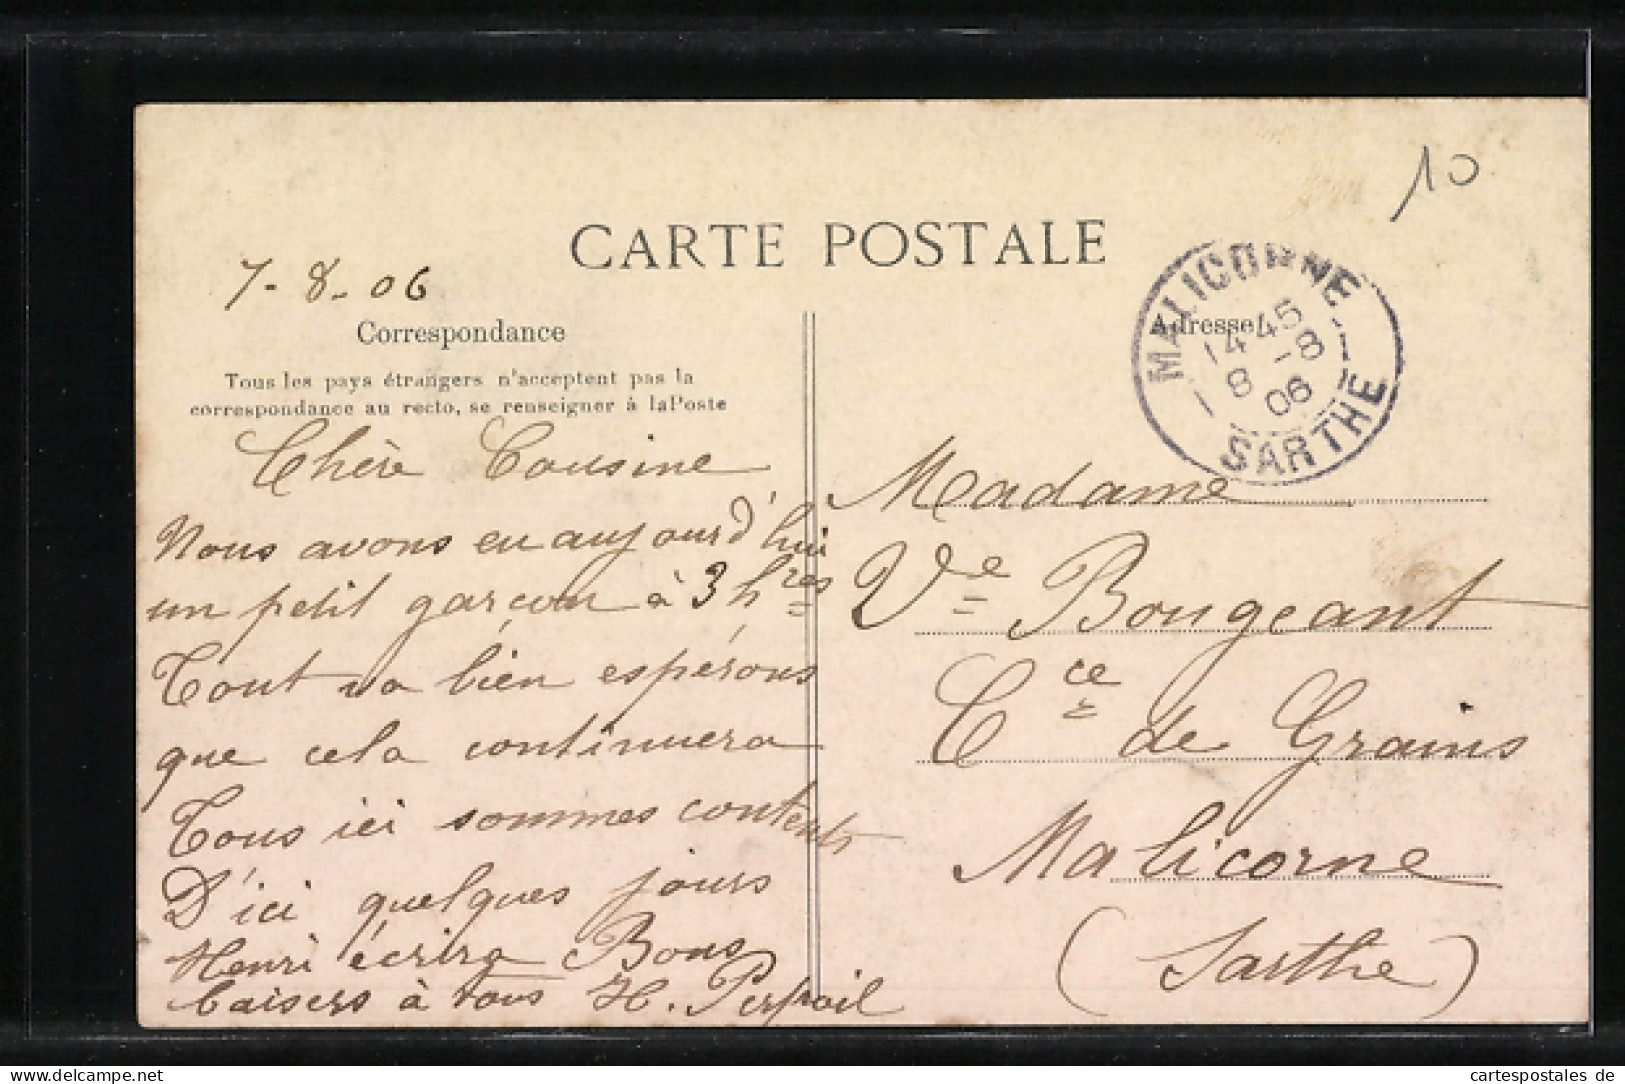 10
CARTE POSTALE
7-8-06
Correspondance
Tous les pays étrangers n'acceptent pas la
correspondance au recto, se renseigner à la Poste
Chère Cousine
Nous avons eu aujourd'hui
un petit garçon à 3 hres
Tout va bien espérons
que cela continuera
Tous ici sommes contents
D'ici quelques jours
Henri écrira Bons
baisers à tous H.
Adresse
MALICORNE
14 45
8 -8
06
SARTHE
Madame
Ve Bougeant
Cce de Grains
Malicorne
(Sarthe)
www.cartespostales.de
cartespostales de